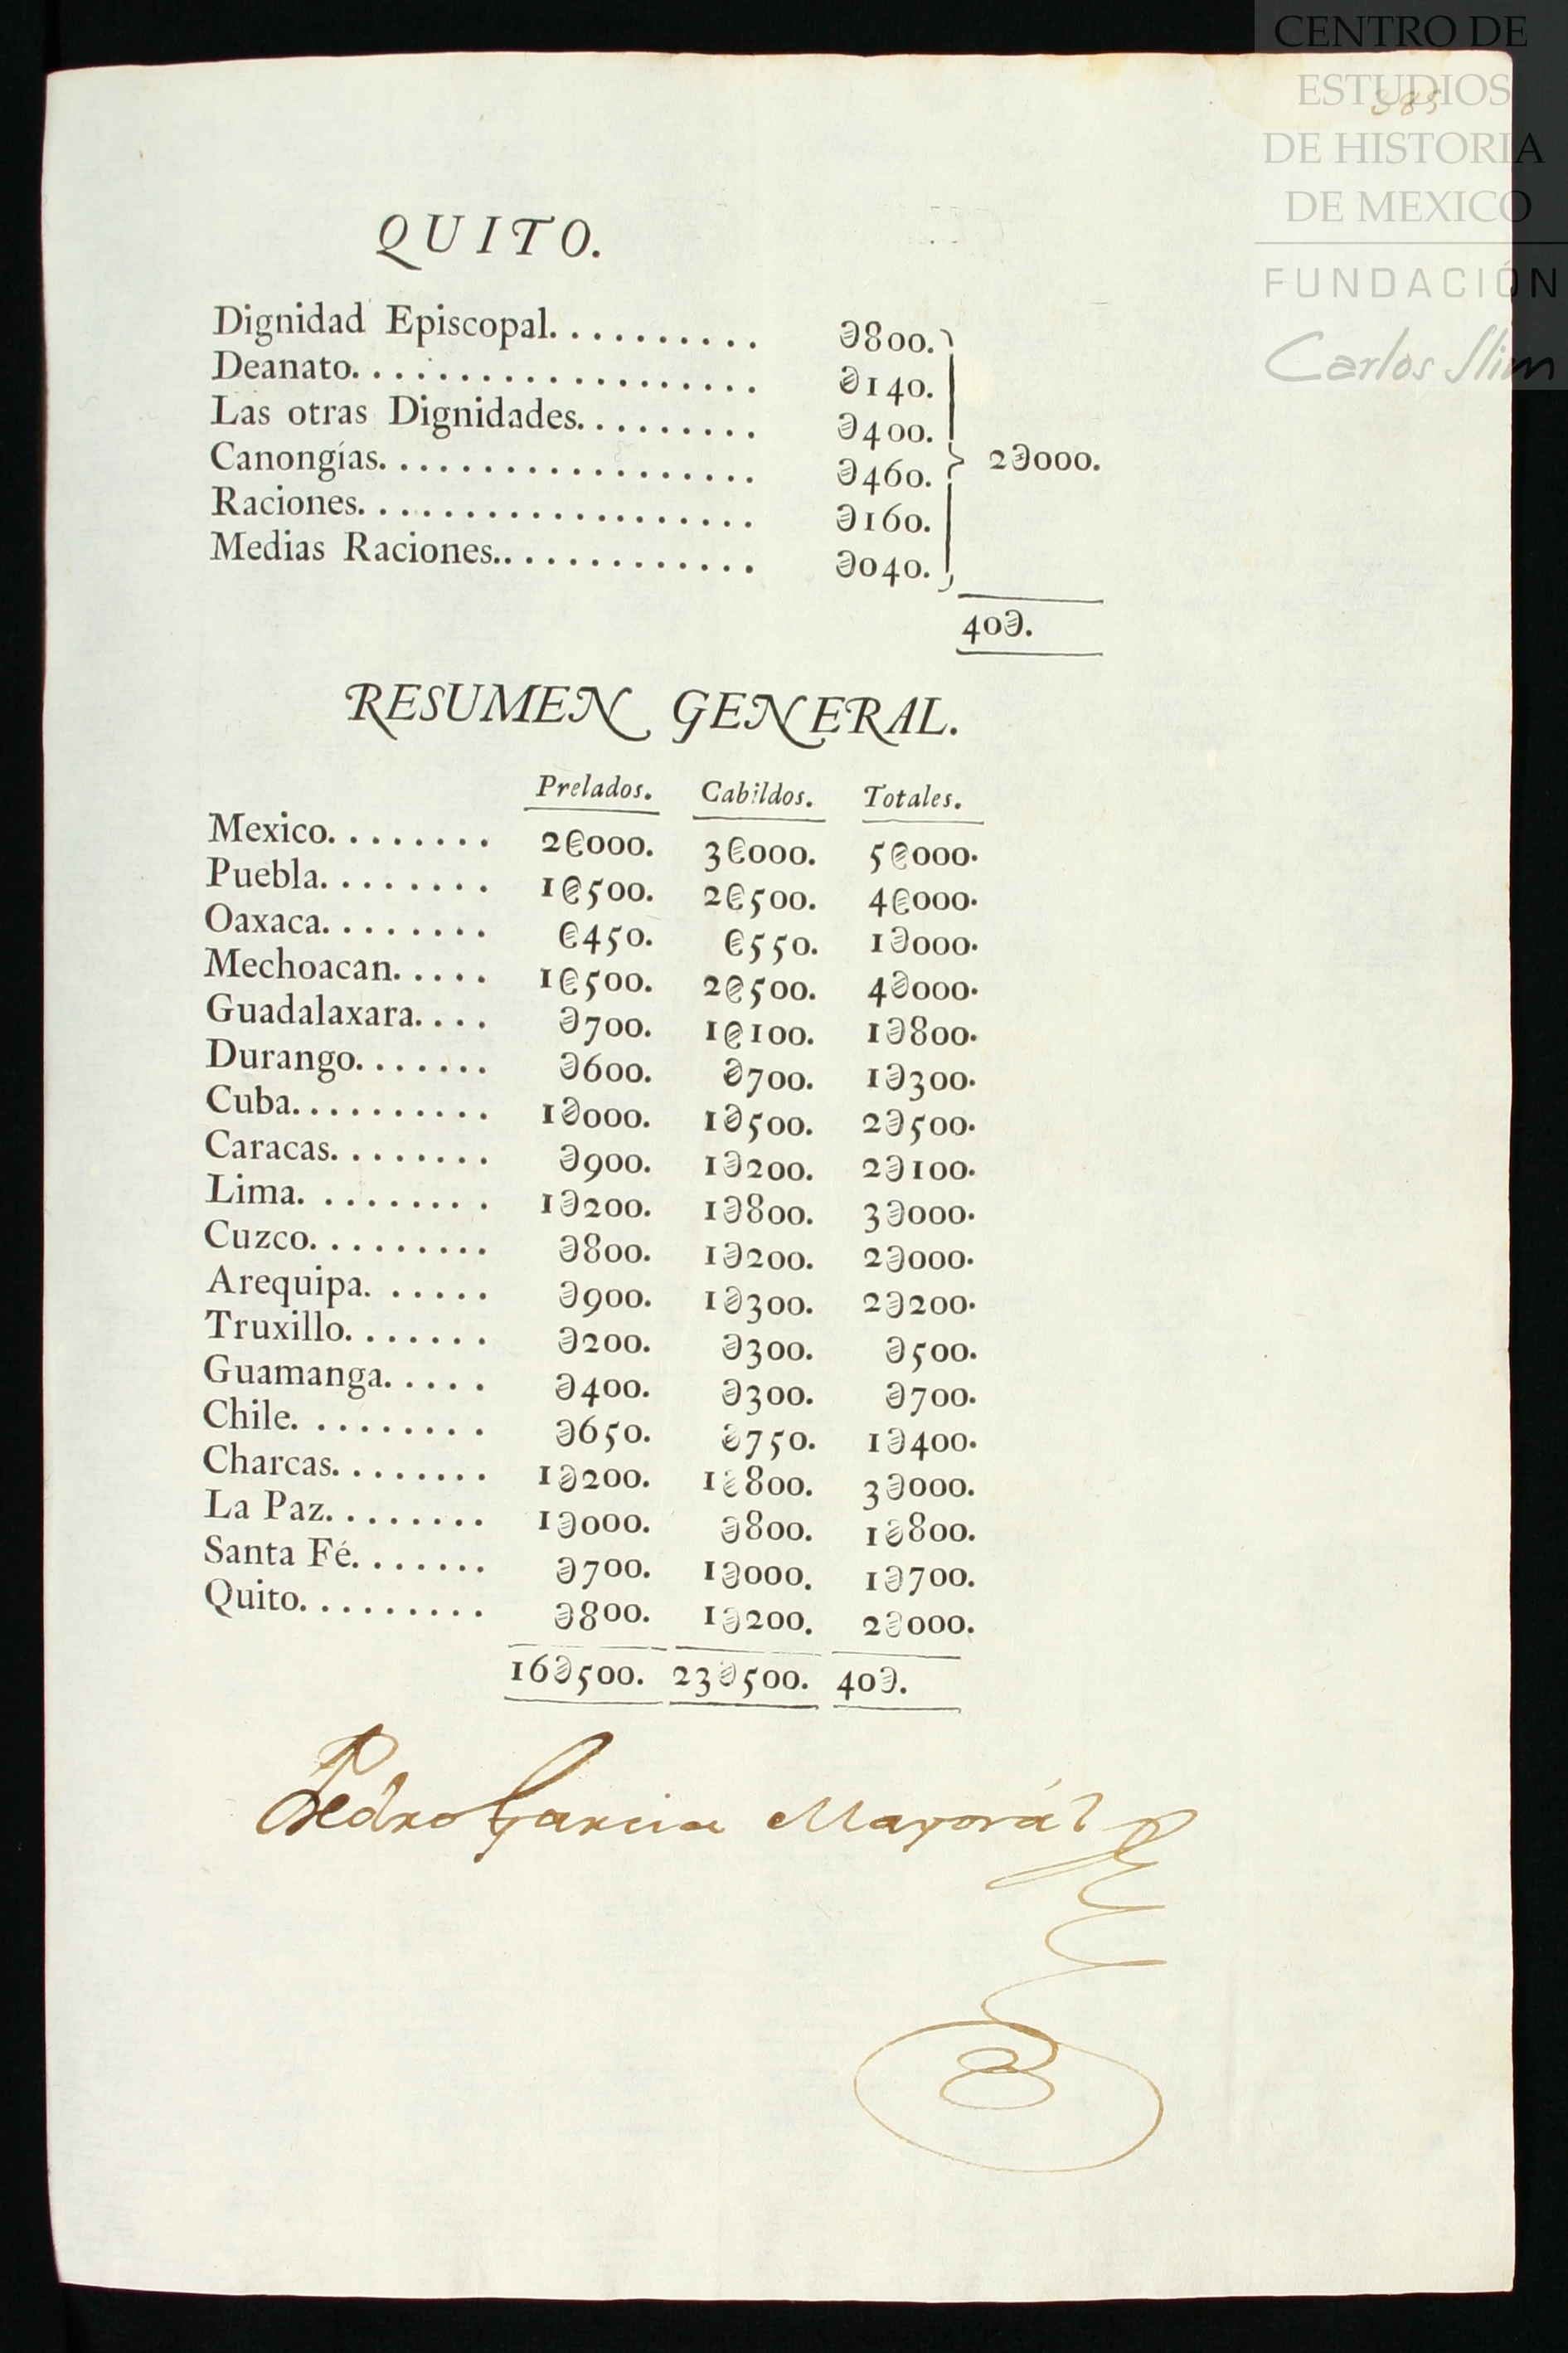 CENTRO DE
ESTUDIOS
DE HISTORIA
DE MEXICO
FUNDACIÓN
Carlos Slim
385
QUITO.
Dignidad Episcopal. . . . . . . . . . Ə800.
Deanato. . . . . . . . . . . . . . . . . . . Ə140.
Las otras Dignidades. . . . . . . . . Ə400.
Canongías. . . . . . . . . . . . . . . . . . Ə460. } 2Ə000.
Raciones. . . . . . . . . . . . . . . . . . . Ə160.
Medias Raciones.. . . . . . . . . . . . Ə040.
40Ə.
RESUMEN GENERAL.
Prelados. Cabildos. Totales.
Mexico. . . . . . . . 2Ə000. 3Ə000. 5Ə000.
Puebla. . . . . . . . 1Ə500. 2Ə500. 4Ə000.
Oaxaca. . . . . . . . Ə450. Ə550. 1Ə000.
Mechoacan. . . . . 1Ə500. 2Ə500. 4Ə000.
Guadalaxara. . . . Ə700. 1Ə100. 1Ə800.
Durango. . . . . . . Ə600. Ə700. 1Ə300.
Cuba. . . . . . . . . . 1Ə000. 1Ə500. 2Ə500.
Caracas. . . . . . . . Ə900. 1Ə200. 2Ə100.
Lima. . . . . . . . . 1Ə200. 1Ə800. 3Ə000.
Cuzco. . . . . . . . . Ə800. 1Ə200. 2Ə000.
Arequipa. . . . . . Ə900. 1Ə300. 2Ə200.
Truxillo. . . . . . . Ə200. Ə300. Ə500.
Guamanga. . . . . Ə400. Ə300. Ə700.
Chile. . . . . . . . . Ə650. Ə750. 1Ə400.
Charcas. . . . . . . . 1Ə200. 1Ə800. 3Ə000.
La Paz. . . . . . . . 1Ə000. Ə800. 1Ə800.
Santa Fé. . . . . . . Ə700. 1Ə000. 1Ə700.
Quito. . . . . . . . . Ə800. 1Ə200. 2Ə000.
16Ə500. 23Ə500. 40Ə.
Pedro Garcia Mayorál